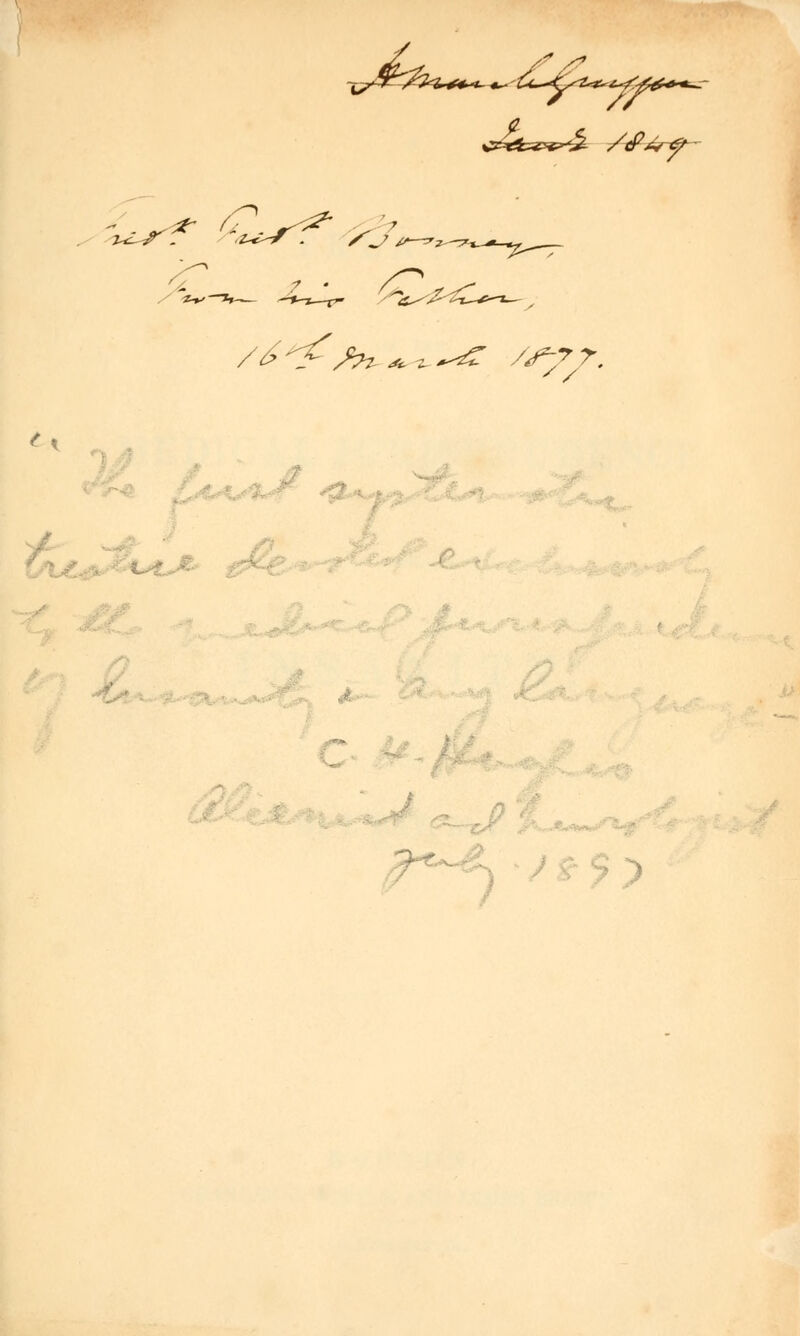 1849
Bonney,
From his Father,
16th March 1877.
"The first systematic
treatise devoted exclusively
to the medical jurisprudence
of Insanity in any language"
C. H. Hughes
Alienist and Neurologist
July 1897